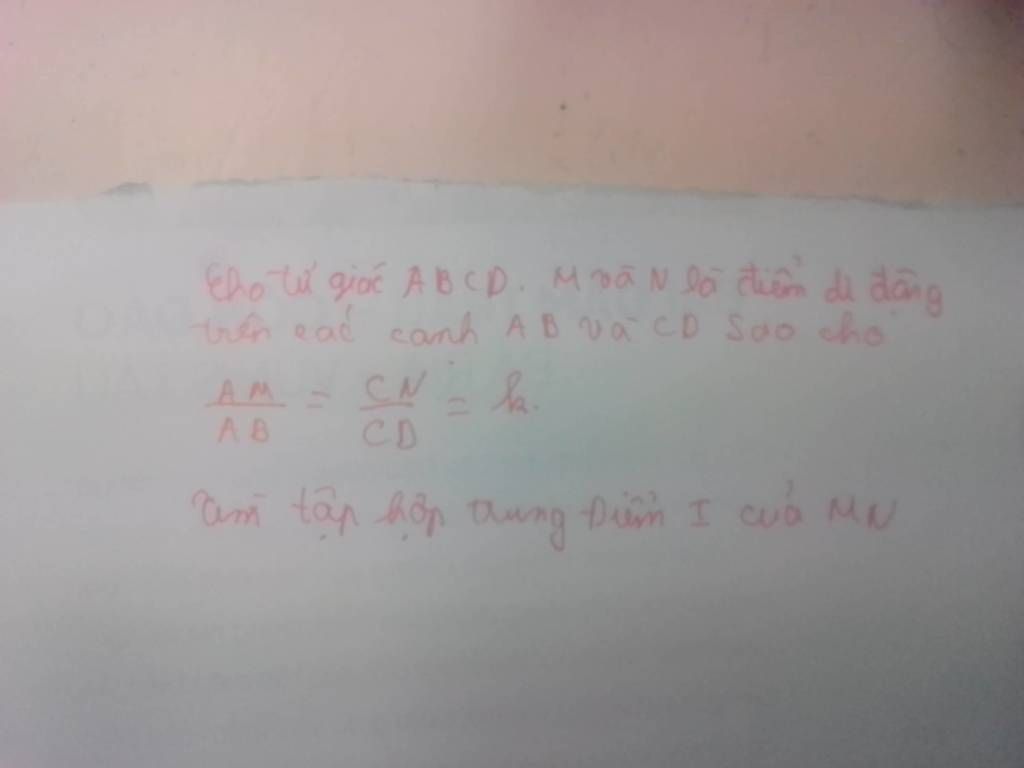 Cho tứ giác ABCD. M và N là điểm di động
trên các cạnh AB và CD sao cho
AM/AB = CN/CD = k.
Tìm tập hợp trung điểm I của MN